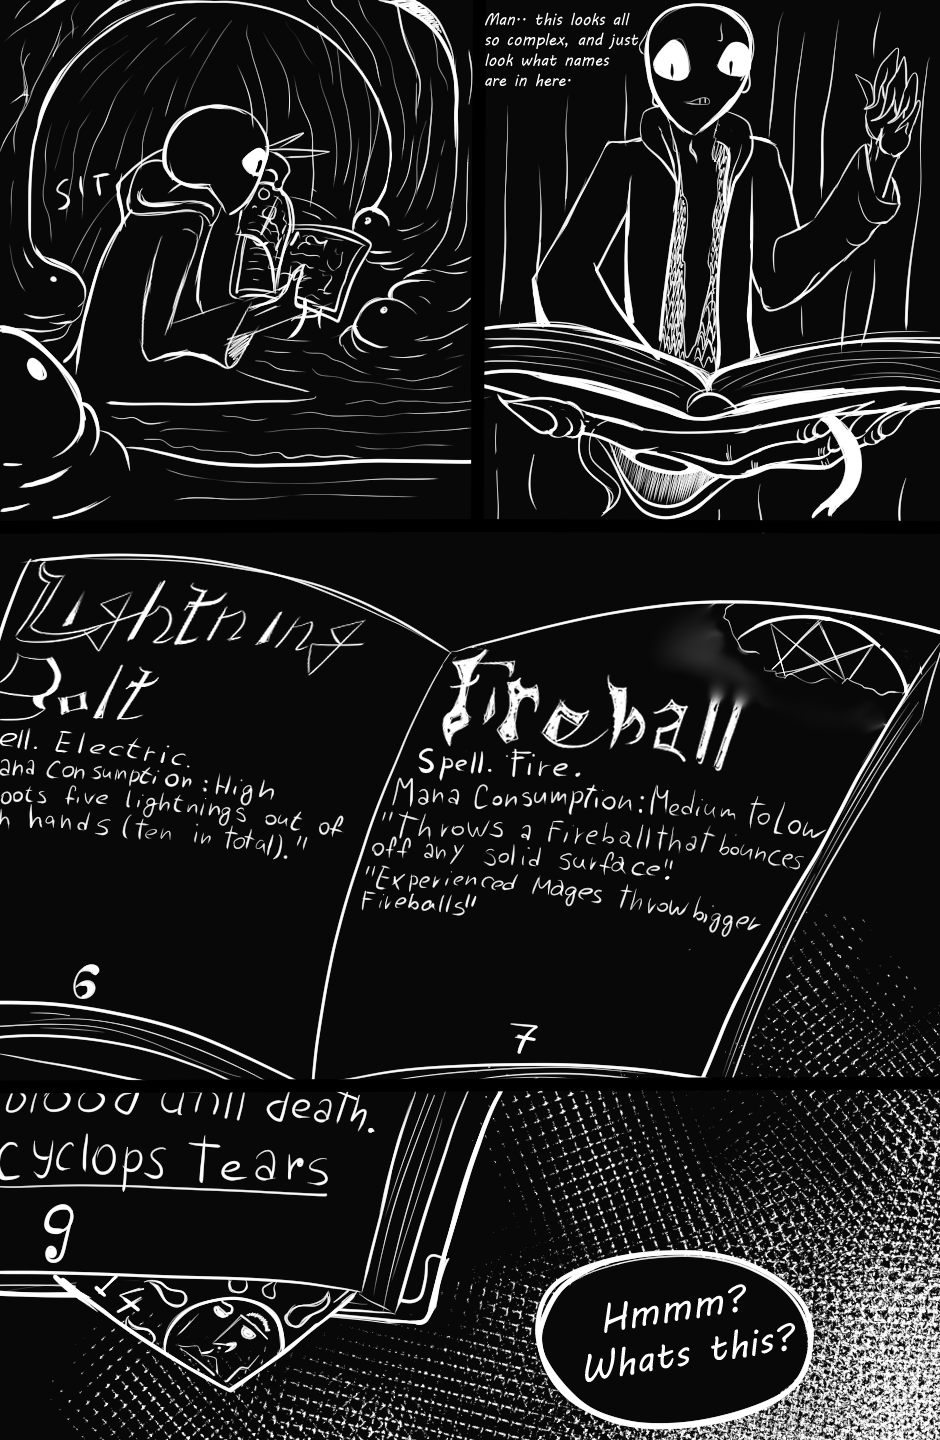 SIT
Man.. this looks all
so complex, and just
look what names
are in here.
Lightning
Bolt
ell. Electric.
ana Consumption: High
oots five lightnings out of
h hands (ten in total)."
6
Fireball
Spell. Fire.
Mana Consumption: Medium to Low
"Throws a Fireball that bounces
off any solid surface"
"Experienced Mages throw bigger
Fireballs"
7
blood until death.
Cyclops Tears
9
14
Hmmm?
Whats this?